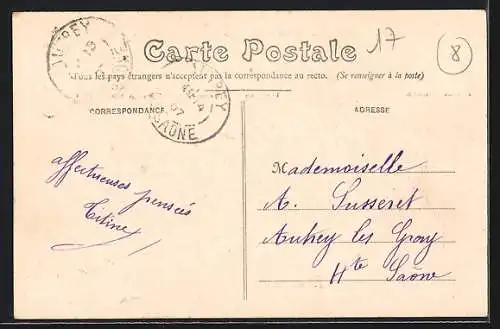 Carte Postale
17
8
Tous les pays étrangers n'acceptent pas la correspondance au recto. (Se renseigner à la poste)
CORRESPONDANCE
ADRESSE
AUTREY
SAÔNE
07
affectueuses pensées
Titine
Mademoiselle
A. Susseret
Autrey les Gray
Hte Saône